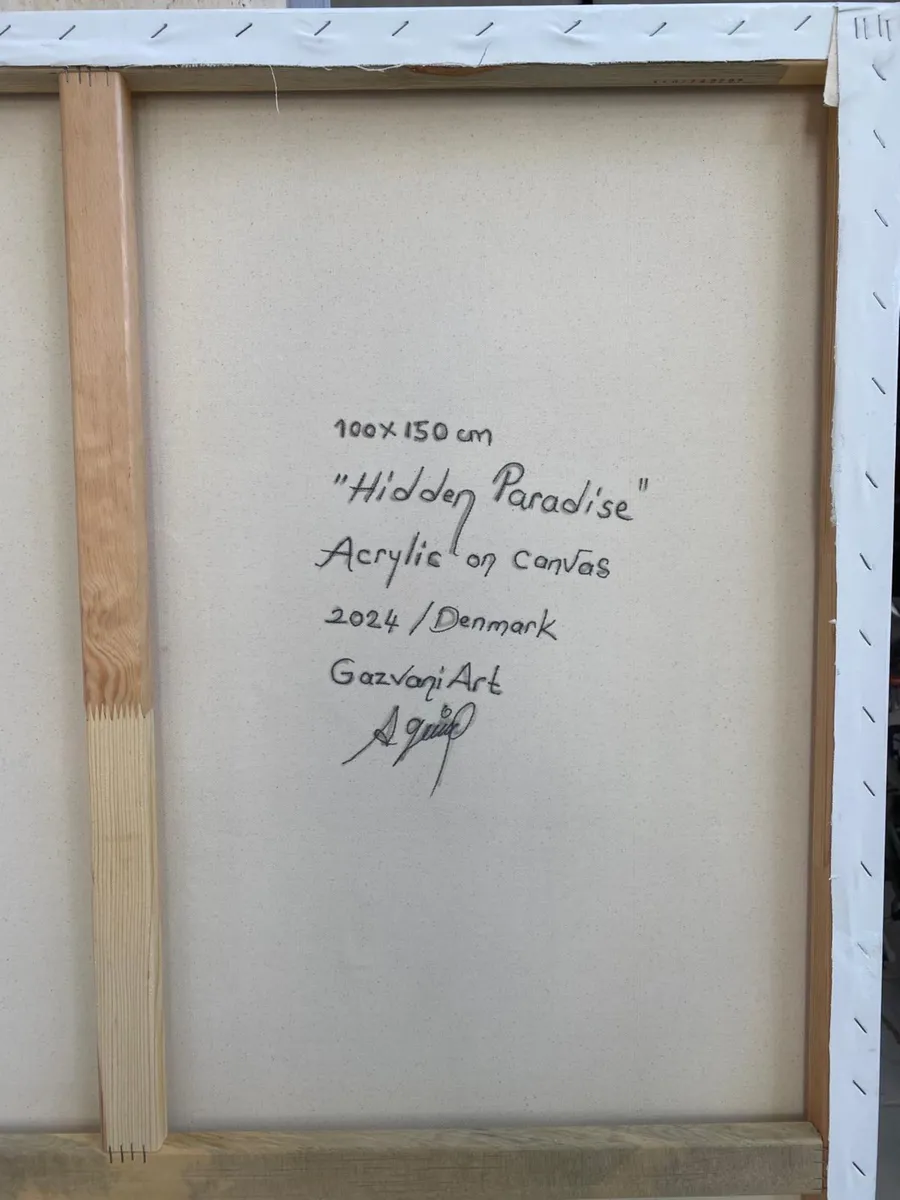 100x150 cm
"Hidden Paradise"
Acrylic on canvas
2024 / Denmark
Gazvani Art